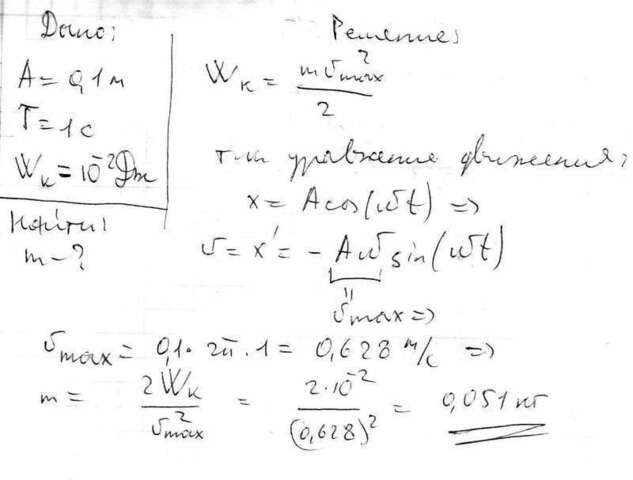 Дано:
A = 0,1 м
T = 1 c
Wк = 10⁻² Дж
Найти:
m - ?
Решение:
Wк = mυ²max / 2
т.к. уравнение движения:
x = A cos(ωt) =>
υ = x' = - Aω sin(ωt)
υmax =>
υmax = 0,1 · 2π · 1 = 0,628 м/с =>
m = 2Wк / υ²max = 2·10⁻² / (0,628)² = 0,051 кг